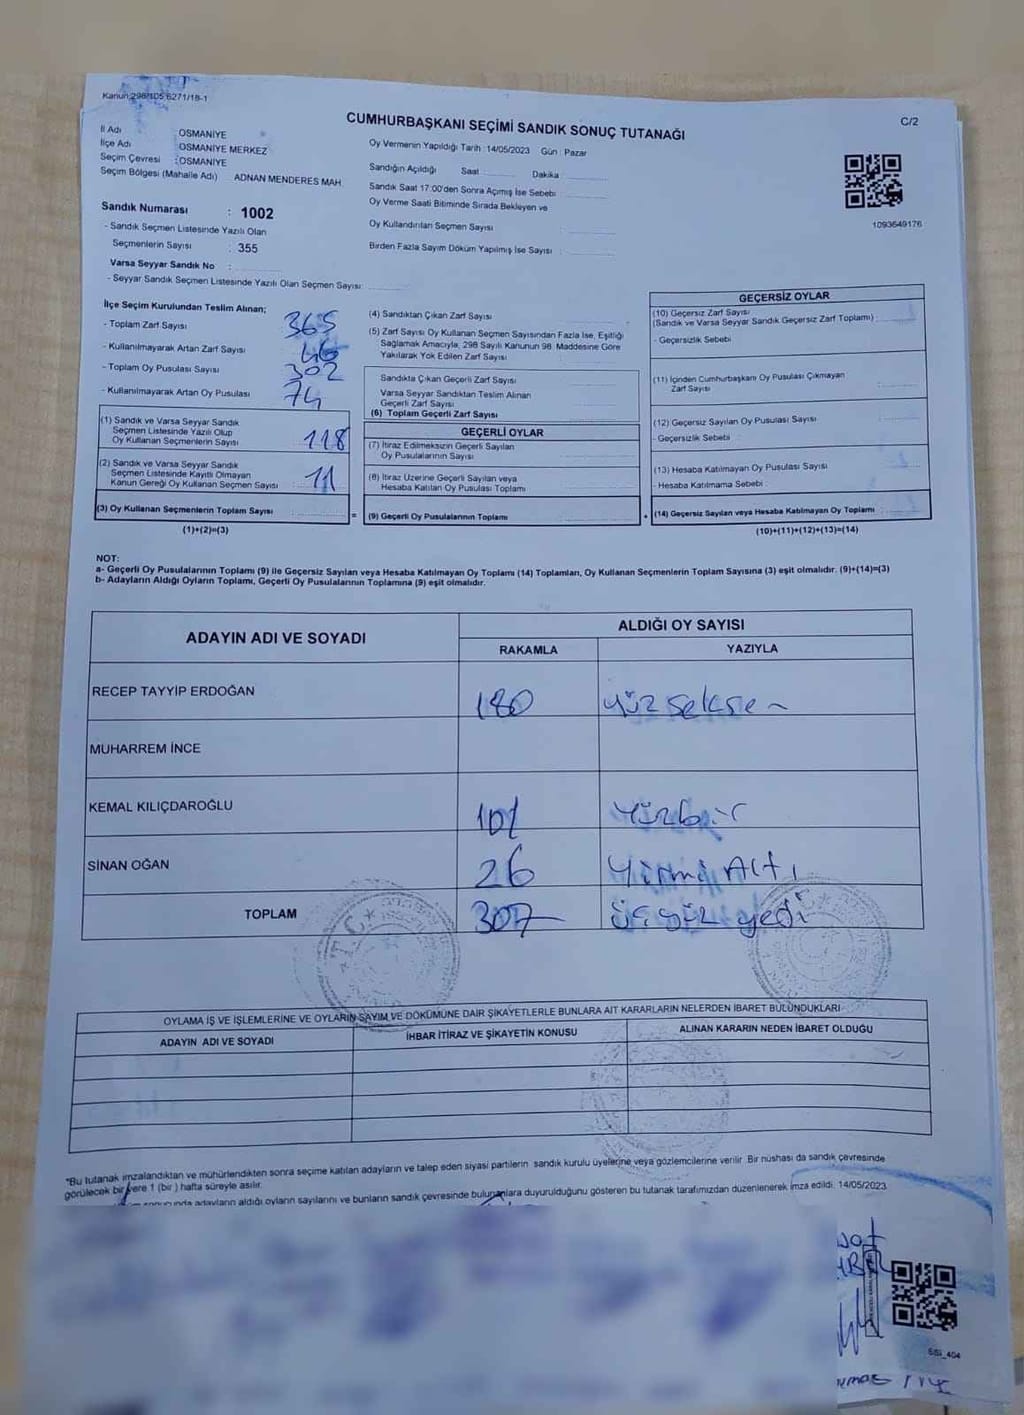 Kanun:298/105 6271/18-1
C/2
CUMHURBAŞKANI SEÇİMİ SANDIK SONUÇ TUTANAĞI
İl Adı : OSMANİYE
İlçe Adı OSMANİYE MERKEZ
Seçim Çevresi : OSMANİYE
Seçim Bölgesi (Mahalle Adı) ADNAN MENDERES MAH.
Sandık Numarası : 1002
- Sandık Seçmen Listesinde Yazılı Olan
Seçmenlerin Sayısı : 355
Varsa Seyyar Sandık No :
- Seyyar Sandık Seçmen Listesinde Yazılı Olan Seçmen Sayısı:
Oy Vermenin Yapıldığı Tarih :14/05/2023 Gün : Pazar
Sandığın Açıldığı Saat : Dakika :
Sandık Saat 17:00'den Sonra Açılmış İse Sebebi :
Oy Verme Saati Bitiminde Sırada Bekleyen ve
Oy Kullandırılan Seçmen Sayısı :
Birden Fazla Sayım Döküm Yapılmış İse Sayısı :
1093649176
İlçe Seçim Kurulundan Teslim Alınan;
- Toplam Zarf Sayısı 365
- Kullanılmayarak Artan Zarf Sayısı 46
- Toplam Oy Pusulası Sayısı 302
- Kullanılmayarak Artan Oy Pusulası 74
(1) Sandık ve Varsa Seyyar Sandık
Seçmen Listesinde Yazılı Olup
Oy Kullanan Seçmenlerin Sayısı : 118
(2) Sandık ve Varsa Seyyar Sandık
Seçmen Listesinde Kayıtlı Olmayan
Kanun Gereği Oy Kullanan Seçmen Sayısı : 11
(3) Oy Kullanan Seçmenlerin Toplam Sayısı :
(1)+(2)=(3)
(4) Sandıktan Çıkan Zarf Sayısı
(5) Zarf Sayısı Oy Kullanan Seçmen Sayısından Fazla İse, Eşitliği
Sağlamak Amacıyla, 298 Sayılı Kanunun 98. Maddesine Göre
Yakılarak Yok Edilen Zarf Sayısı
Sandıkta Çıkan Geçerli Zarf Sayısı
Varsa Seyyar Sandıktan Teslim Alınan
Geçerli Zarf Sayısı
(6) Toplam Geçerli Zarf Sayısı
GEÇERLİ OYLAR
(7) İtiraz Edilmeksizin Geçerli Sayılan
Oy Pusulalarının Sayısı
(8) İtiraz Üzerine Geçerli Sayılan veya
Hesaba Katılan Oy Pusulası Toplamı
= (9) Geçerli Oy Pusulalarının Toplamı
GEÇERSİZ OYLAR
(10) Geçersiz Zarf Sayısı
(Sandık ve Varsa Seyyar Sandık Geçersiz Zarf Toplamı) :
- Geçersizlik Sebebi
(11) İçinden Cumhurbaşkanı Oy Pusulası Çıkmayan
Zarf Sayısı
(12) Geçersiz Sayılan Oy Pusulası Sayısı
- Geçersizlik Sebebi
(13) Hesaba Katılmayan Oy Pusulası Sayısı
- Hesaba Katılmama Sebebi
+ (14) Geçersiz Sayılan veya Hesaba Katılmayan Oy Toplamı :
(10)+(11)+(12)+(13)=(14)
NOT:
a- Geçerli Oy Pusulalarının Toplamı (9) ile Geçersiz Sayılan veya Hesaba Katılmayan Oy Toplamı (14) Toplamları, Oy Kullanan Seçmenlerin Toplam Sayısına (3) eşit olmalıdır. (9)+(14)=(3)
b- Adayların Aldığı Oyların Toplamı, Geçerli Oy Pusulalarının Toplamına (9) eşit olmalıdır.
ADAYIN ADI VE SOYADI
ALDIĞI OY SAYISI
RAKAMLA YAZIYLA
RECEP TAYYİP ERDOĞAN 180 Yüz seksen
MUHARREM İNCE
KEMAL KILIÇDAROĞLU 101 Yüzbir
SİNAN OĞAN 26 Yirmi Altı
TOPLAM 307 üç yüz yedi
OYLAMA İŞ VE İŞLEMLERİNE VE OYLARIN SAYIM VE DÖKÜMÜNE DAİR ŞİKAYETLERLE BUNLARA AİT KARARLARIN NELERDEN İBARET BULUNDUKLARI
ADAYIN ADI VE SOYADI İHBAR İTİRAZ VE ŞİKAYETİN KONUSU ALINAN KARARIN NEDEN İBARET OLDUĞU
*Bu tutanak imzalandıktan ve mühürlendikten sonra seçime katılan adayların ve talep eden siyasi partilerin sandık kurulu üyelerine veya gözlemcilerine verilir. Bir nüshası da sandık çevresinde
görülecek bir yere 1 (bir) hafta süreyle asılır.
adayların aldığı oyların sayılarını ve bunların sandık çevresinde bulunanlara duyurulduğunu gösteren bu tutanak tarafımızdan düzenlenerek imza edildi. 14/05/2023
SSI_404